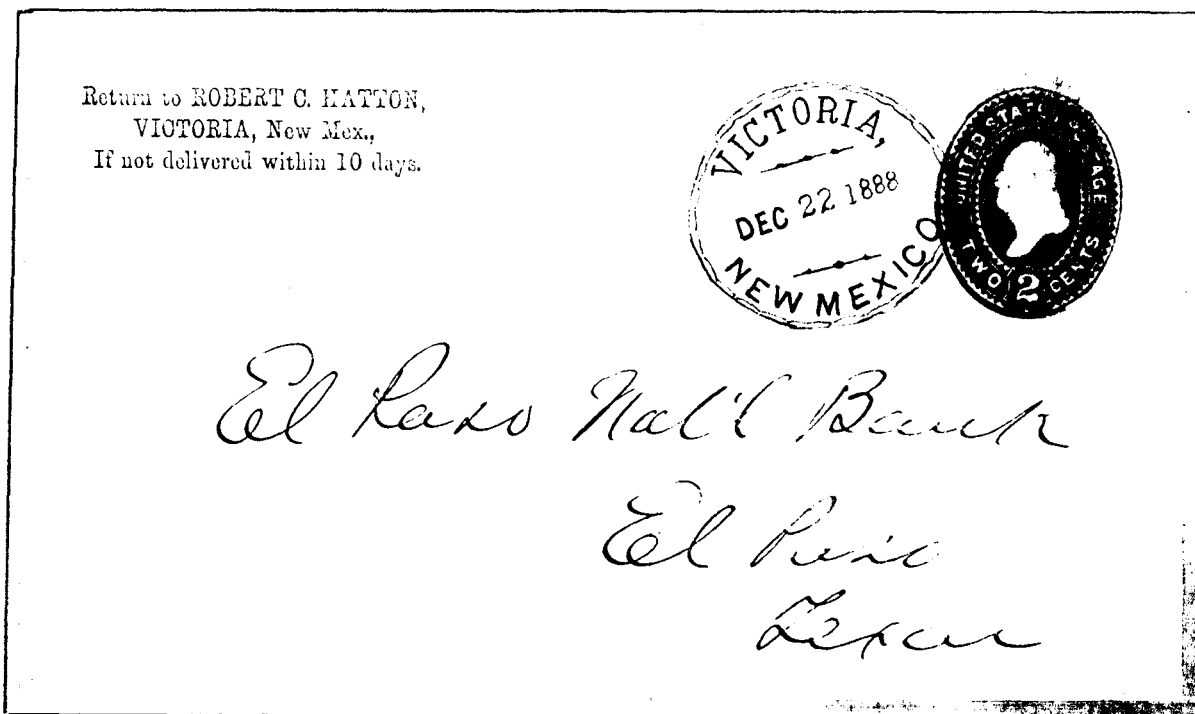 Return to ROBERT C. HATTON,
VICTORIA, New Mex.,
If not delivered within 10 days.
VICTORIA,
DEC 22 1888
NEW MEXICO
UNITED STATES POSTAGE
TWO 2 CENTS
El Paso Nat'l Bank
El Paso
Texas